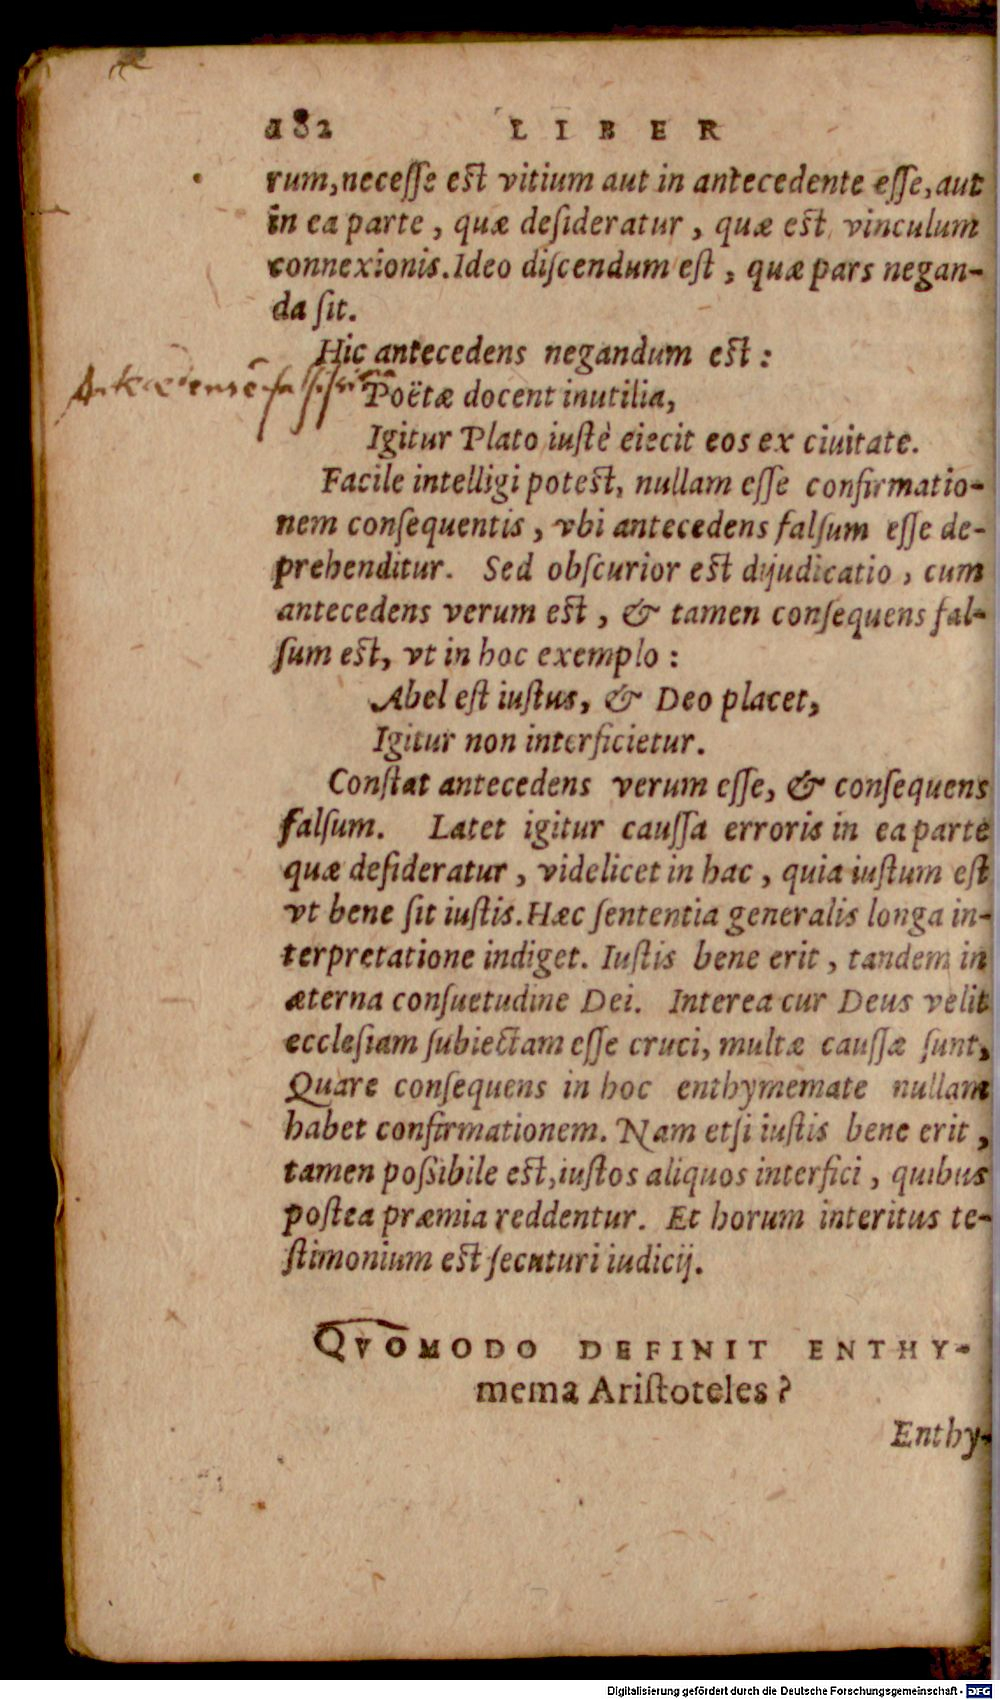 182 LIBER
rum, necesse est vitium aut in antecedente esse, aut
in ea parte, quæ desideratur, quæ est vinculum
connexionis. Ideo discendum est, quæ pars negan-
da sit.
Hic antecedens negandum est:
Antecedens ē
Poëtæ docent inutilia,
Igitur Plato iustè eiecit eos ex ciuitate.
Facile intelligi potest, nullam esse confirmatio-
nem consequentis, vbi antecedens falsum esse de-
prehenditur. Sed obscurior est dijudicatio, cum
antecedens verum est, & tamen consequens fal-
sum est, vt in hoc exemplo:
Abel est iustus, & Deo placet,
Igitur non interficietur.
Constat antecedens verum esse, & consequens
falsum. Latet igitur caussa erroris in ea parte
quæ desideratur, videlicet in hac, quia iustum est
vt bene sit iustis. Hæc sententia generalis longa in-
terpretatione indiget. Iustis bene erit, tandem in
æterna consuetudine Dei. Interea cur Deus velit
ecclesiam subiectam esse cruci, multæ caussæ sunt,
Quare consequens in hoc enthymemate nullam
habet confirmationem. Nam etsi iustis bene erit,
tamen possibile est, iustos aliquos interfici, quibus
postea præmia reddentur. Et horum interitus te-
stimonium est secuturi iudicij.
QVOMODO DEFINIT ENTHY-
mema Aristoteles?
Enthy-
Digitalisierung gefördert durch die Deutsche Forschungsgemeinschaft - DFG